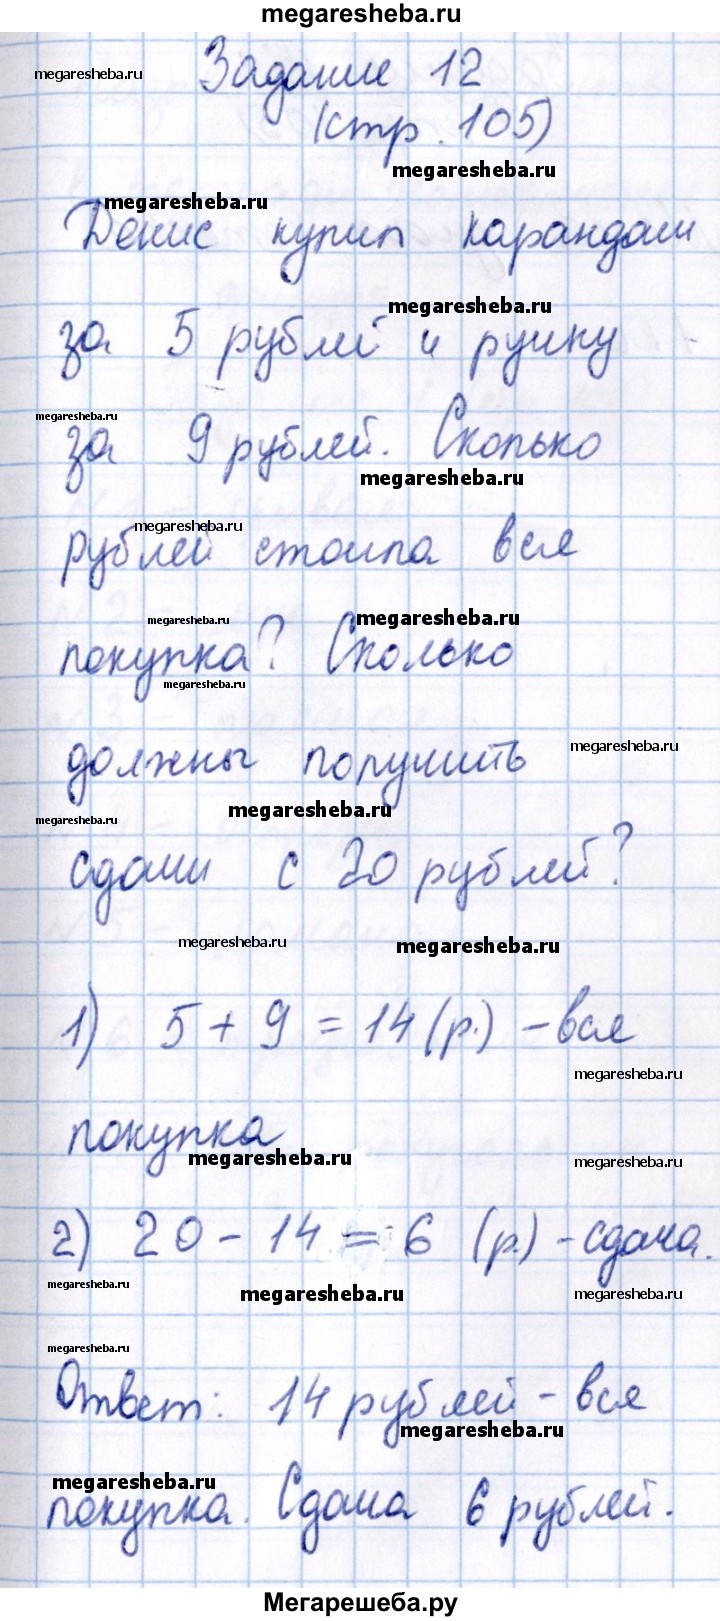 megaresheba.ru
Задание 12
megaresheba.ru
(стр. 105)
megaresheba.ru
megaresheba.ru
Денис купил карандаш
megaresheba.ru
за 5 рублей и ручку
megaresheba.ru
за 9 рублей. Сколько
megaresheba.ru
megaresheba.ru
рублей стоила вся
megaresheba.ru megaresheba.ru
покупка? Сколько
megaresheba.ru
должны получить
megaresheba.ru
megaresheba.ru
megaresheba.ru
сдачи с 20 рублей?
megaresheba.ru megaresheba.ru
1) 5 + 9 = 14 (р.) - вся
megaresheba.ru
покупка
megaresheba.ru megaresheba.ru
2) 20 - 14 = 6 (р.) - сдача.
megaresheba.ru megaresheba.ru megaresheba.ru
megaresheba.ru
Ответ: 14 рублей - вся
megaresheba.ru
megaresheba.ru
покупка. Сдача 6 рублей.
Мегарешеба.ру